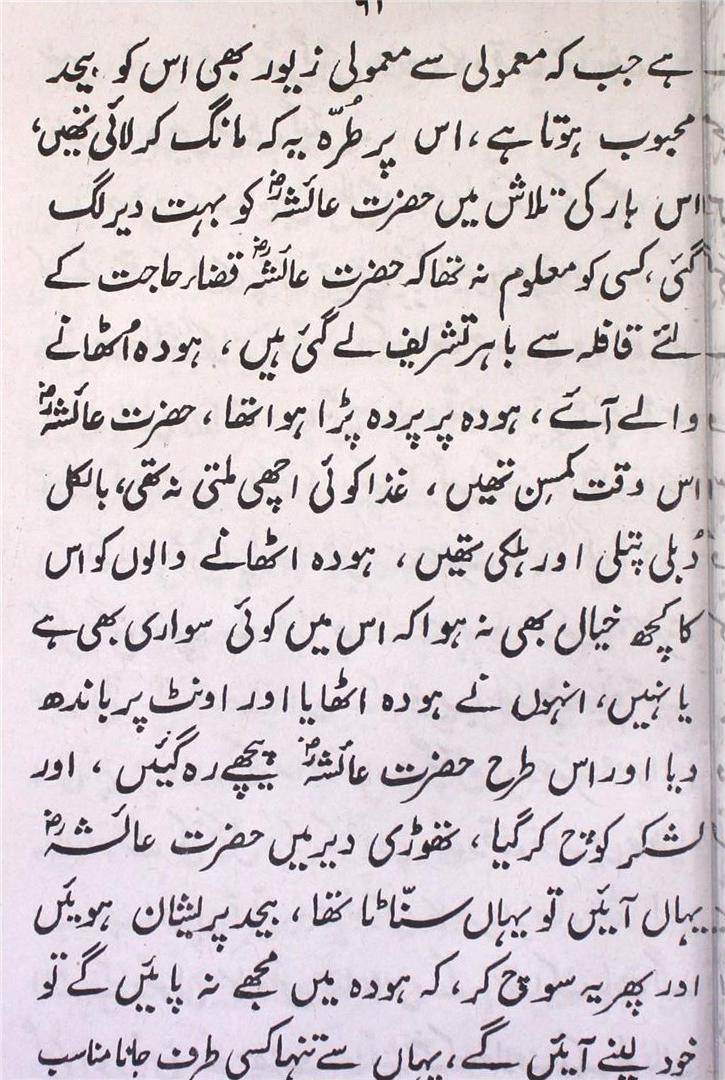 ۶۱
ہے جب کہ معمولی سے معمولی زیور بھی اس کو بیحد
محبوب ہوتا ہے، اس پر طُرّہ یہ کہ مانگ کر لائی تھیں،
اس ہار کی تلاش میں حضرت عائشہؓ کو بہت دیر لگ
گئی، کسی کو معلوم نہ تھا کہ حضرت عائشہؓ قضاء حاجت کے
لئے قافلہ سے باہر تشریف لے گئی ہیں، ہودہ اُٹھانے
والے آئے، ہودہ پر پردہ پڑا ہوا تھا، حضرت عائشہؓ
اس وقت کمسِن تھیں، غذا کوئی اچھی ملتی نہ تھی، بالکل
دُبلی پتلی اور ہلکی تھیں، ہودہ اٹھانے والوں کو اس
کا کچھ خیال بھی نہ ہوا کہ اس میں کوئی سواری بھی ہے
یا نہیں، انہوں نے ہودہ اٹھایا اور اونٹ پر باندھ
دیا اور اس طرح حضرت عائشہؓ پیچھے رہ گئیں، اور
لشکر کوچ کر گیا، تھوڑی دیر میں حضرت عائشہؓ
یہاں آئیں تو یہاں سنّاٹا تھا، بیحد پریشان ہوئیں
اور پھر یہ سوچ کر، کہ ہودہ میں مجھے نہ پائیں گے تو
خود لینے آئیں گے، یہاں سے تنہا کسی طرف جانا مناسب